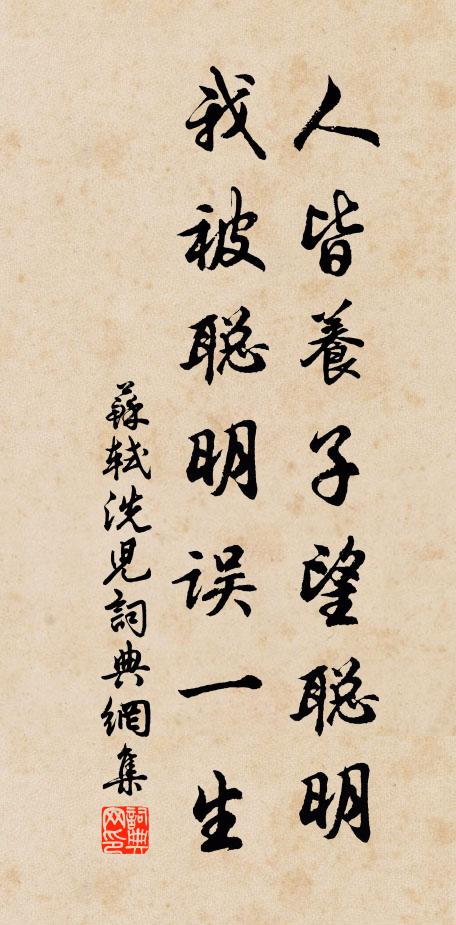 人皆養子望聪明
我被聪明误一生
蘇軾洗児詞典網集
詞典网印